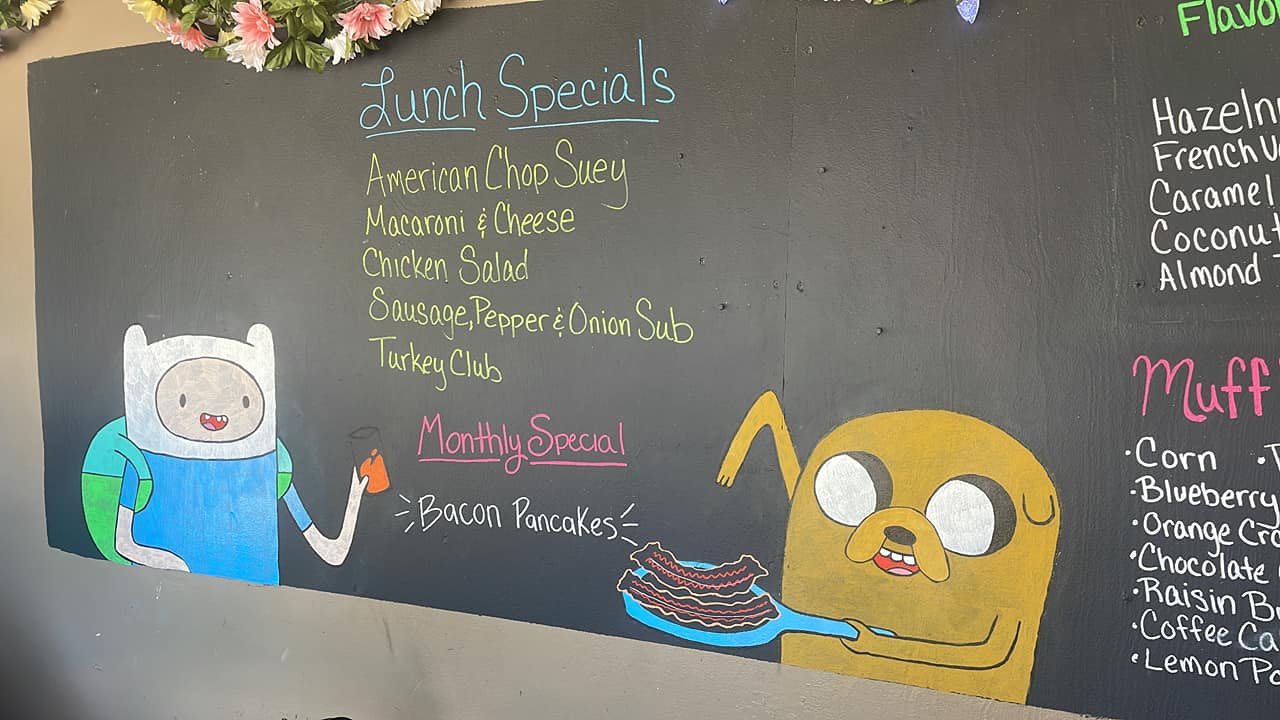 Lunch Specials
American Chop Suey
Macaroni & Cheese
Chicken Salad
Sausage, Pepper & Onion Sub
Turkey Club
Monthly Special
Bacon Pancakes
Hazeln
French
Caramel
Coconut
Almond
Muff
·Corn
·Blueberry
·Orange
·Chocolate
·Raisin
·Coffee
·Lemon